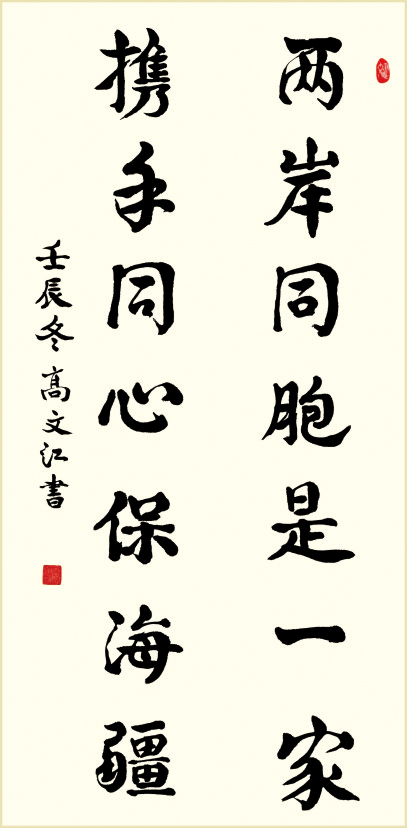 两岸同胞是一家
携手同心保海疆
壬辰冬高文江書